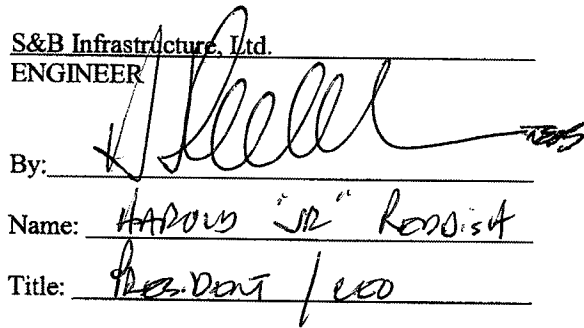 S&B Infrastructure, Ltd.
ENGINEER
By:
Name: HAROLD "JR" REDDISH
Title: PRESIDENT / CEO